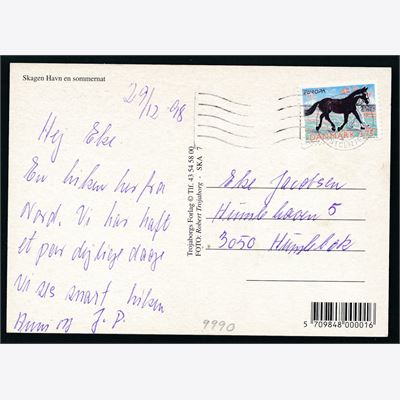 Skagen Havn en sommernat
29/12-98
Hej Eke
En hilsen her fra
Nord. Vi har haft
et par dejlige dage
Vi ses snart hilsen
og J.P.
Trojaborgs Forlag © Tlf. 43 54 58 00
FOTO: Robert Trojaborg - SKA 7
EUROPA
DANMARK
Eke Jacobsen
Humlehaven 5
3050 Humlebæk
9990
5 709848 000016